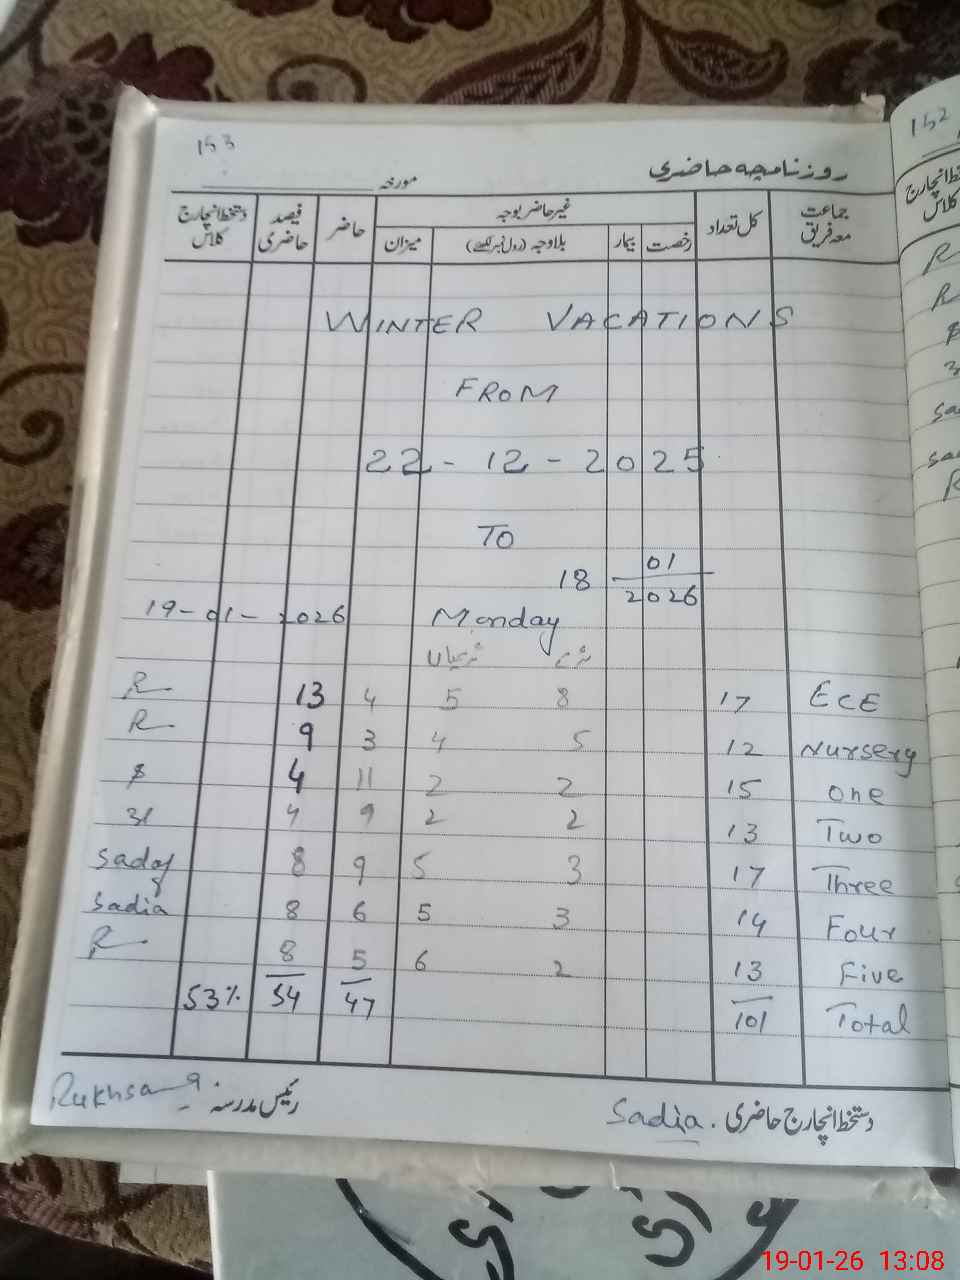 153
روزنامچہ حاضری
مورخہ
جماعت معہ فریق کل تعداد غیر حاضر بوجہ حاضر فیصد حاضری دستخط انچارج کلاس
رخصت بیمار بلاوجہ (رول نمبر لکھیے) میزان
WINTER VACATIONS
FROM
22-12-2025
TO
18 01
2026
19-01-2026 Monday
R 13 4 5 8 17 ECE
R 9 3 4 5 12 Nursery
4 11 2 2 15 one
4 9 2 2 13 Two
Sadaf 8 9 5 3 17 Three
Sadia 8 6 5 3 14 Four
R 8 5 6 2 13 Five
53% 54 47 101 Total
Rukhsana رئیس مدرسہ
دستخط انچارج حاضری Sadia.
152
انچارج
کلاس
R
R
Sa
Sa
R
19-01-26 13:08